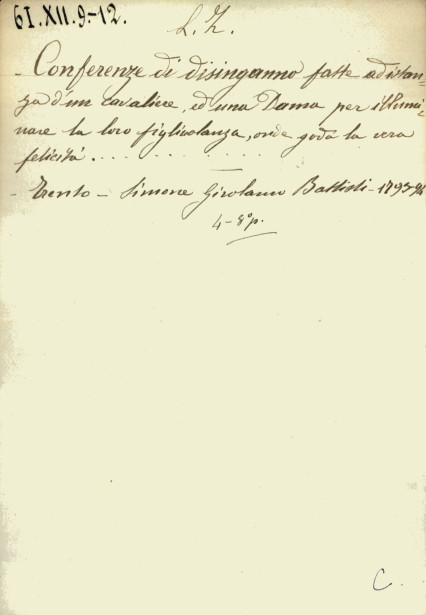 61.XII.9-12.
L. Z.
- Conferenze di disinganno fatte ad istan-
za d'un cavaliere, ed una Dama per illumi-
nare la loro figliuolanza, onde goda la vera
felicità . . . . . . . .
- Trento - Simone Girolamo Battisti - 1793-94
4 - 8° p.
C.